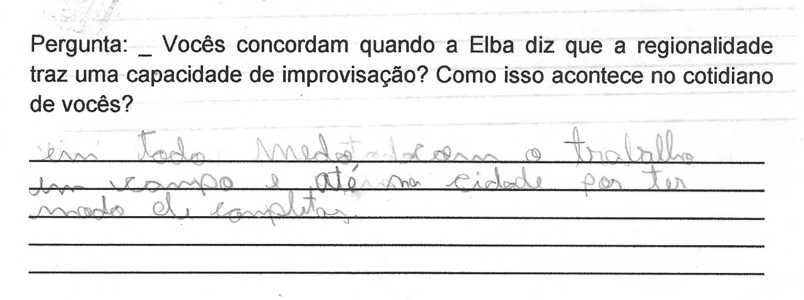 Pergunta: _ Vocês concordam quando a Elba diz que a regionalidade
traz uma capacidade de improvisação? Como isso acontece no cotidiano
de vocês?
em todo medo com o trabalho
em campo e até na cidade por ter
modo de completas